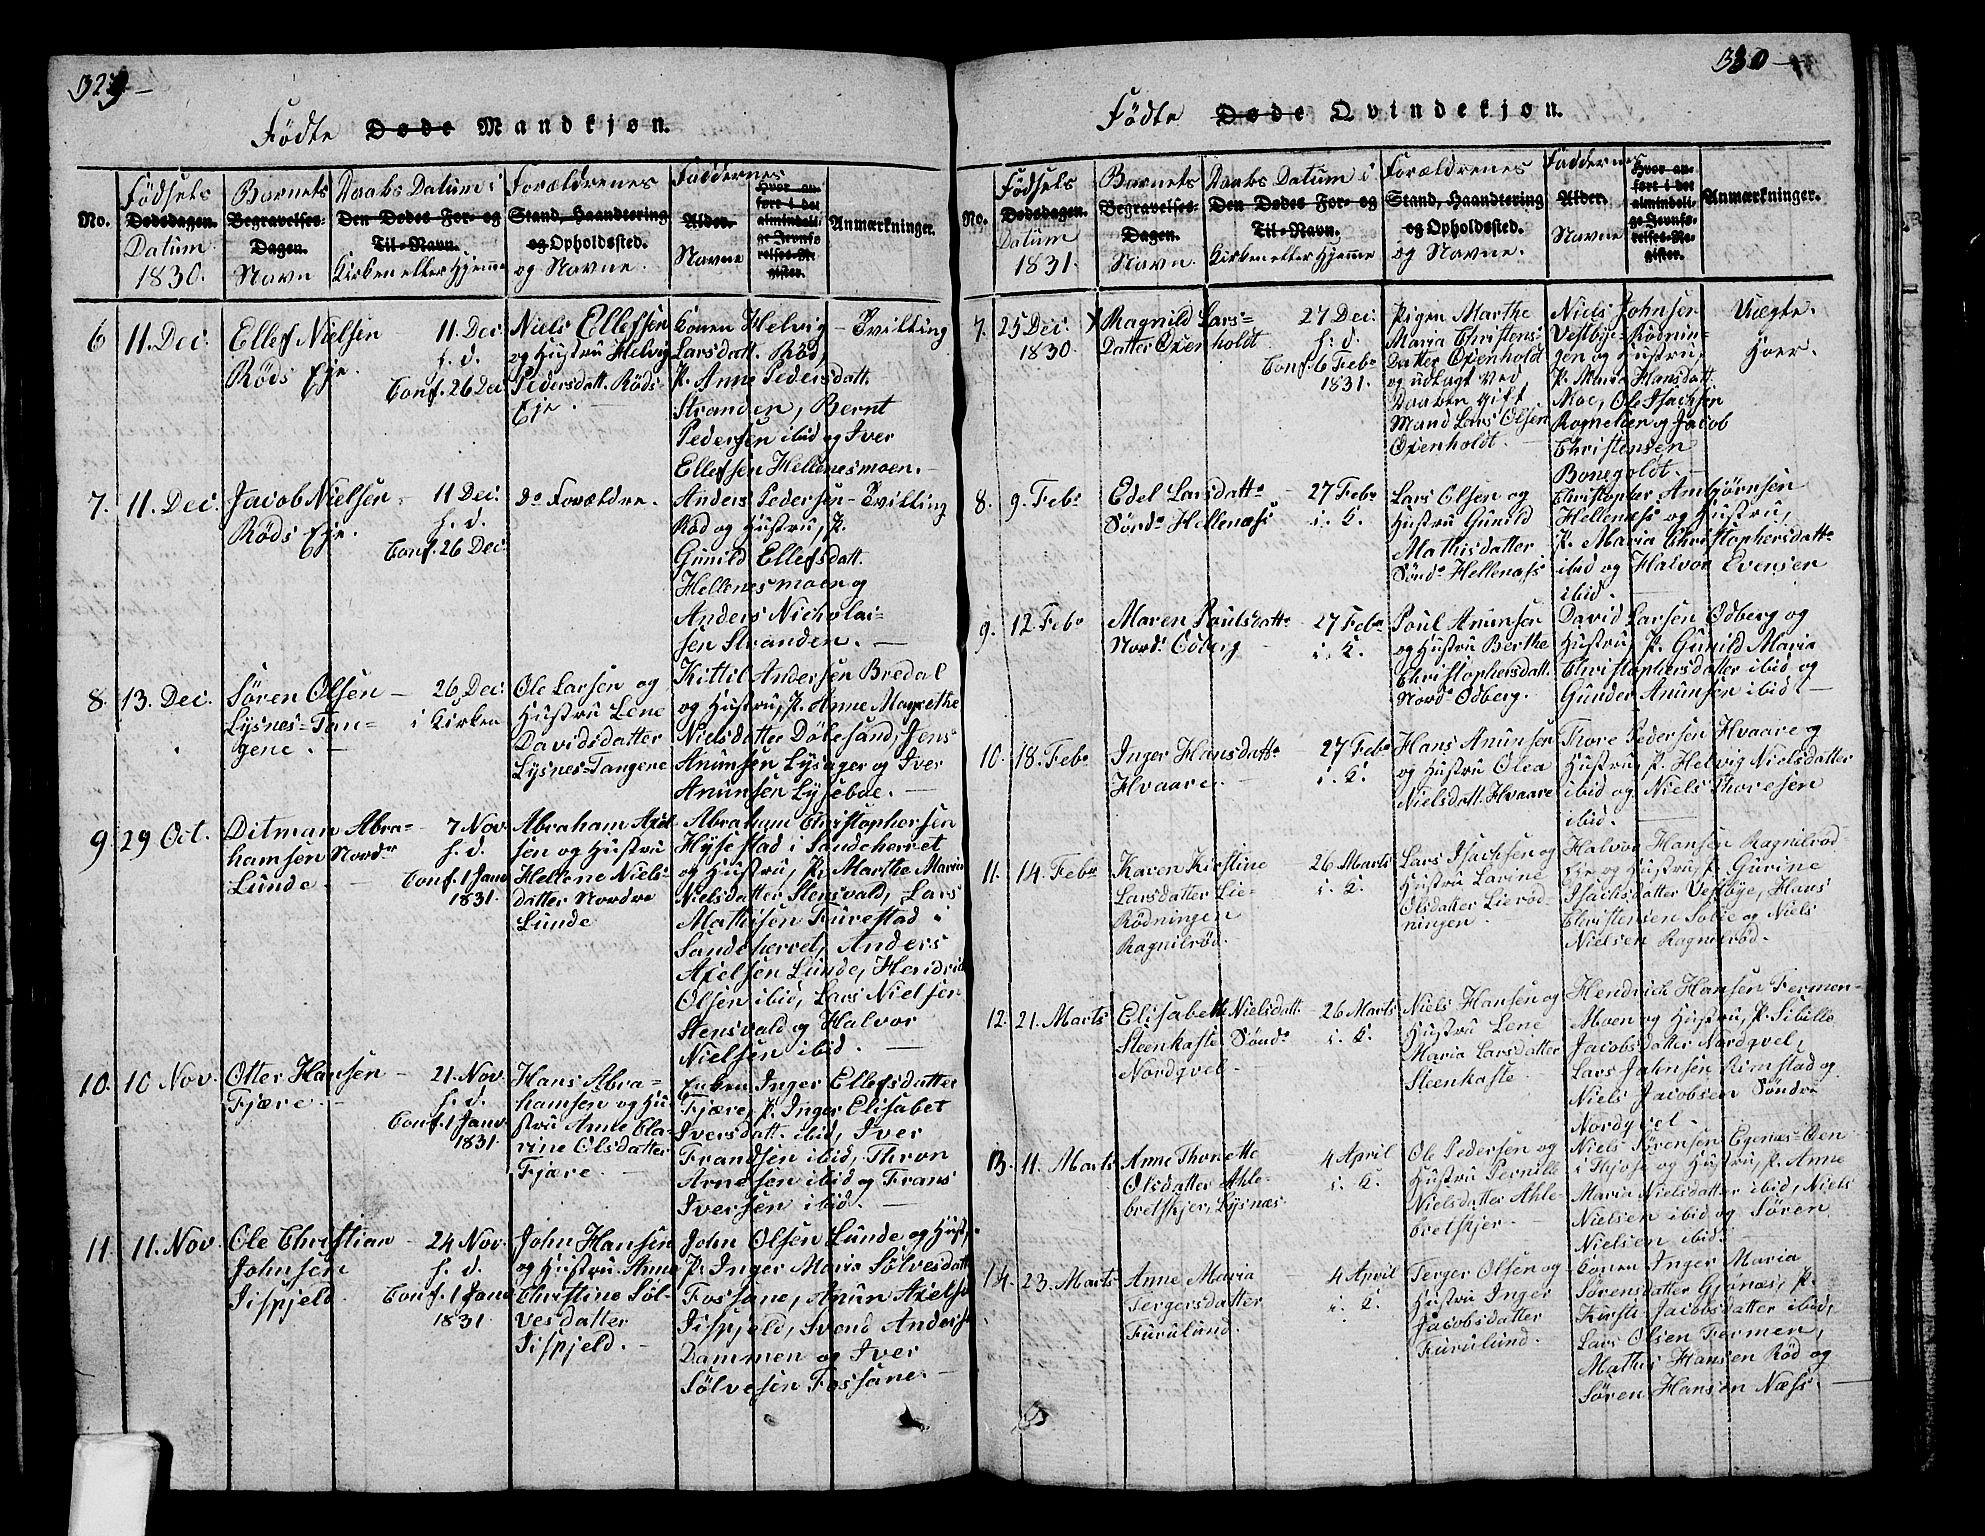 329
Födte Døde Mandkjøn.
No.
Födsels
Dødsdagen.
Datum
1830.
Barnets
Begravelses-
Dagen.
Navn
Daabs Datum i
Den Dødes For- og
Til-Navn.
Kirken eller Hjemme
Forældrenes
Stand, Haandtering
og Opholdssted.
og Navne.
Faddernes
Alder.
Navne
Hvor an-
ført i det
almindeli-
ge Jevnfø-
relses-Re-
gister.
Anmærkninger.
6 11. Dec.
Ellef Nielsen
Röds Eje.
11. Dec.
h. d.
Conf. 26 Dec
Niels Ellefsen
og Hustru Helvig
Pedersdatt. Röds
Eje.
Konen Helvig
Larsdatt. Röd,
P. Anne Pedersdatt.
Stranden, Bernt
Pedersen ibid og Iver
Ellefsen Hellenesmoen.
Tvilling
7. 11. Dec.
Jacob Nielsen
Röds Eje.
11 Dec.
h. d.
Conf. 26 Dec.
Do Forældre.
Anders Pedersen
Röd og Hustru, P.
Gunild Ellefsdatt.
Hellenesmoen og
Anders Nicholai-
sen Stranden.
Tvilling
8. 13. Dec.
Sören Olsen
Lysnes-Tan-
gene.
26 Dec.
i Kirken
Ole Larsen og
Hustru Lene
Davidsdatter
Lysnes-Tangene
Kittil Andersen Bredal
og Hustru, P. Anne Magrethe
Nielsdatter Dölesund, Jens
Anunsen Lysager og Iver
Anunsen Lysebae.
9. 29 Oct.
Ditman Abra-
hamsen Nordr
Lunde.
7 Nov
h. d.
Conf. 1 Janv
1831.
Abraham Axel-
sen og Hustru
Hellene Niels-
datter Nordre
Lunde
Abraham Christophersen
Hysestad i Sandeherret
og Hustru, P. Marthe Maria
Nielsdatter Stensvald, Lars
Mathisen Furestad i
Sandeherret, Anders
Axelsen Lunde, Hendrik
Olsen ibid, Lars Nielsen
Stensvald og Halvor
Nielsen ibid.
10. 10 Nov.
Otter Hansen
Fjære.
21. Nov.
h. d.
Conf. 1 Janv.
1831.
Hans Abra-
hamsen og Hu-
stru Anne Cla-
rine Olsdatter
Fjære.
Enken Inger Ellefsdatter
Fjære, P. Inger Elisabet
Iversdatt. ibid, Iver
Frandsen ibid, Thron
Arnesen ibid og Frans
Iversen ibid.
11. 11. Nov.
Ole Christian
Johnsen
Jispjeld.
24 Nov.
h. d.
Conf. 1 Janv
1831.
John Hansen
og Hustru Anne
Christine Söl-
vesdatter
Jispjeld.
John Olsen Lunde og Hust.
P. Inger Maria Sölvesdatt.
Fossane, Anun Axelsen
Jispjeld, Svend Anders
Dammen og Iver
Sölvesen Fossane.
330
Födte Døde Qvindekjøn.
No.
Födsels
Dødsdagen.
Datum
1831.
Barnets
Begravelses-
Dagen.
Navn.
Daabs Datum i
Den Dødes For- og
Til-Navn.
Kirken eller Hjemme
Forældrenes
Stand, Haandtering
og Opholdssted.
og Navne.
Faddernes
Alder.
Navne
Hvor an-
ført i det
almindeli-
ge Jevnfø-
relses-Re-
gister.
Anmærkninger.
7. 25 Dec.
1830.
Ragnild Lars-
Datter Oxenholdt
27 Dec.
h. d.
Conf. 6 Febr
1831.
Pigen Marthe
Maria Christens-
Datter Oxenholdt
og udlagt ved
Daaben gift
Mand Lars Olsen
Oxenholdt.
Niels Johnsen
Vestbye-Rödnin-
gen og Hustru,
P. Maria Hansdatt.
Moe, Ole Isachsen
Ragnilröd og Jacob
Christensen
Bonegoldt.
Uægte.
Hoer.
8. 9. Febr
Edel Larsdattr
Söndr Hellenæss
27 Febr
i. K.
Lars Olsen og
Hustru Gunild
Mathisdatter
Söndr Hellenæss
Christopher Ambjörnsen
Hellenæss og Hustru,
P. Maria Christophersdattr
ibid og Halvor Evensen
ibid.
9. 12 Febr
Maren Poulsdattr
Nordr Odberg
27 Febr
i. K.
Poul Anunsen
og Hustru Berthe
Christophersdatt.
Nordr Odberg.
David Larsen Odberg og
Hustru, P. Gunild Maria
Christophersdatter ibid og
Gunder Anunsen ibid.
10. 18. Febr
Inger Hansdattr
Hvaare.
27 Febr
i. K.
Hans Anunsen
og Hustru Olea
Nielsdatt. Hvaare
Thore Pedersen Hvaare og
Hustru, P. Helvig Nielsdatter
ibid og Niels Thoresen
ibid.
11. 14. Febr
Karen Kirstine
Larsdatter Lie-
Rödningen
Ragnilröd.
26 Marts
i. K.
Lars Isachsen og
Hustru Larine
Olsdatter Lieröd-
ningen.
Halvor Hansen Ragnilröd
Eje og Hustru, P. Gurine
Isachsdatter Vestbye, Hans
Christensen Solie og Niels
Nielsen Ragnilröd.
12. 21. Marts
Elisabeth Nielsdatt.
Steenkaste Söndr
Nordqvel.
26 Marts
i. K.
Niels Hansen og
Hustru Lene
Maria Larsdatter
Steenkaste.
Hendrick Hansen Fermen-
Moen og Hustru, P. Sibille
Jacobsdatter Nordqvel,
Lars Johnsen Rimstad og
Niels Jacobsen Söndre
Nordqvel.
13. 11. Marts
Anne Thonette
Olsdatter Ahle-
bretskjer, Lysnæs
4 April
i. K.
Ole Pedersen og
Hustru Pernille
Nielsdatter Ahle-
bretskjer.
Niels Sörensen Egenæs-Öen
i Hjose og Hustru, P. Anne
Maria Nielsdatter ibid, Niels
Nielsen ibid og Sören
Nielsen ibid.
14. 23. Marts
Anne Maria
Tergersdatter
Furulund.
4 April
i. K.
Terger Olsen og
Hustru Inger
Jacobsdatter
Furulund.
Konen Inger Maria
Sörensdatter Gjönæs, P.
Kirsti Jacobsdatter ibid,
Lars Olsen Fermen,
Mathis Hansen Röd og
Sören Hansen Næss.